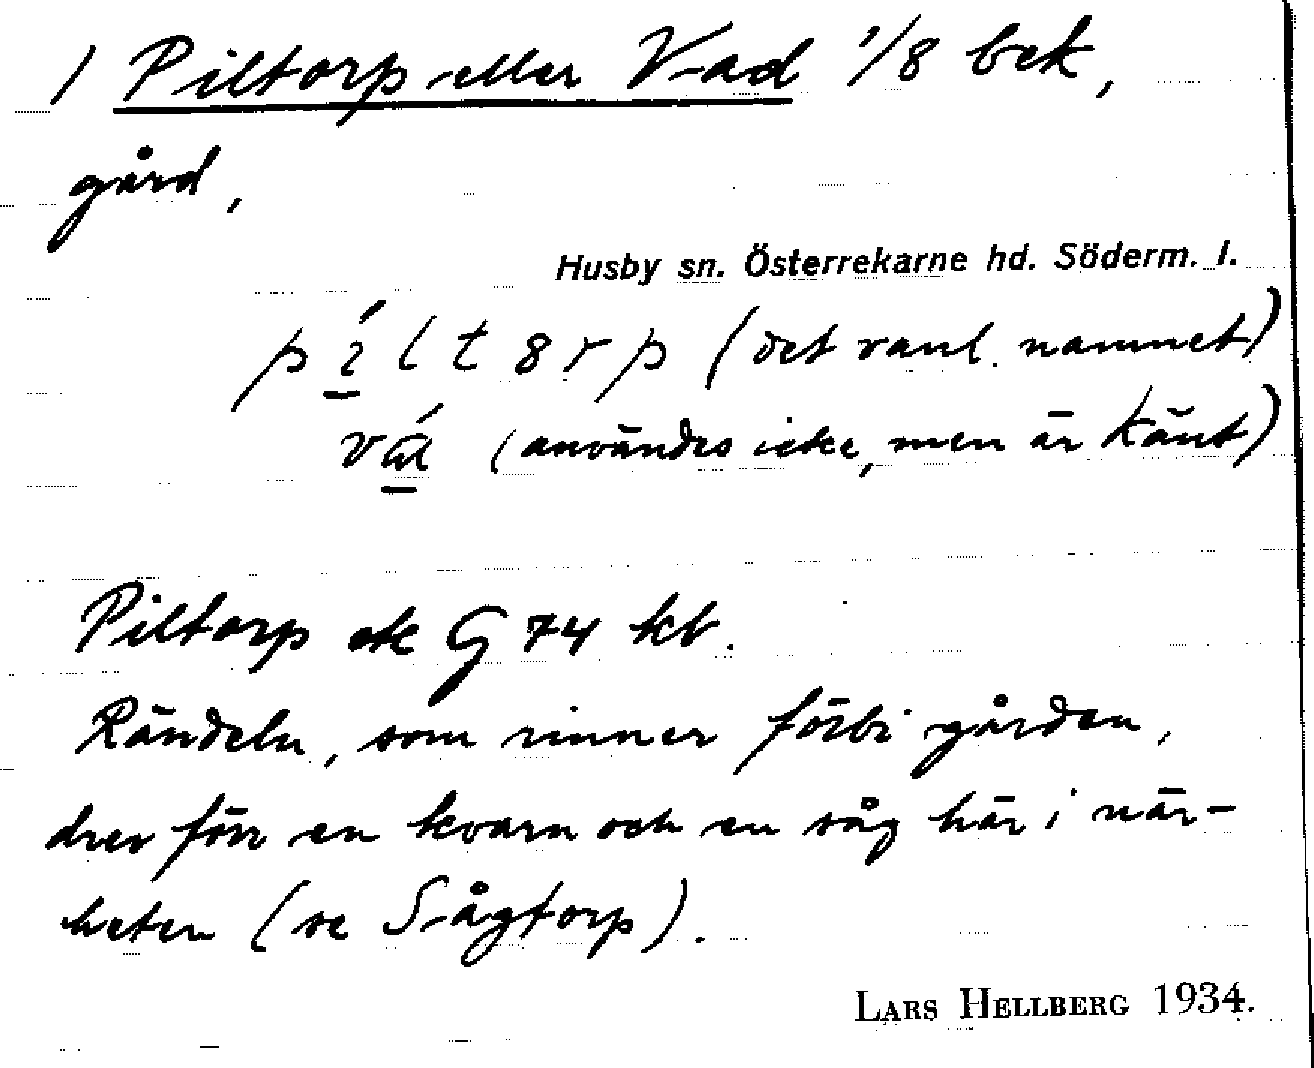 1 Piltorp eller Vad 1/8 bek,
gård,
Husby sn. Österrekarne hd. Söderm. l.
píltȣrp (det vanl. namnet)
vá (användes icke, men är känt)
Piltorp ek G 74 kb.
Rändeln, som rinner förbi gården,
drev förr en kvarn och en såg här i när-
heten (se Sågtorp).
LARS HELLBERG 1934.